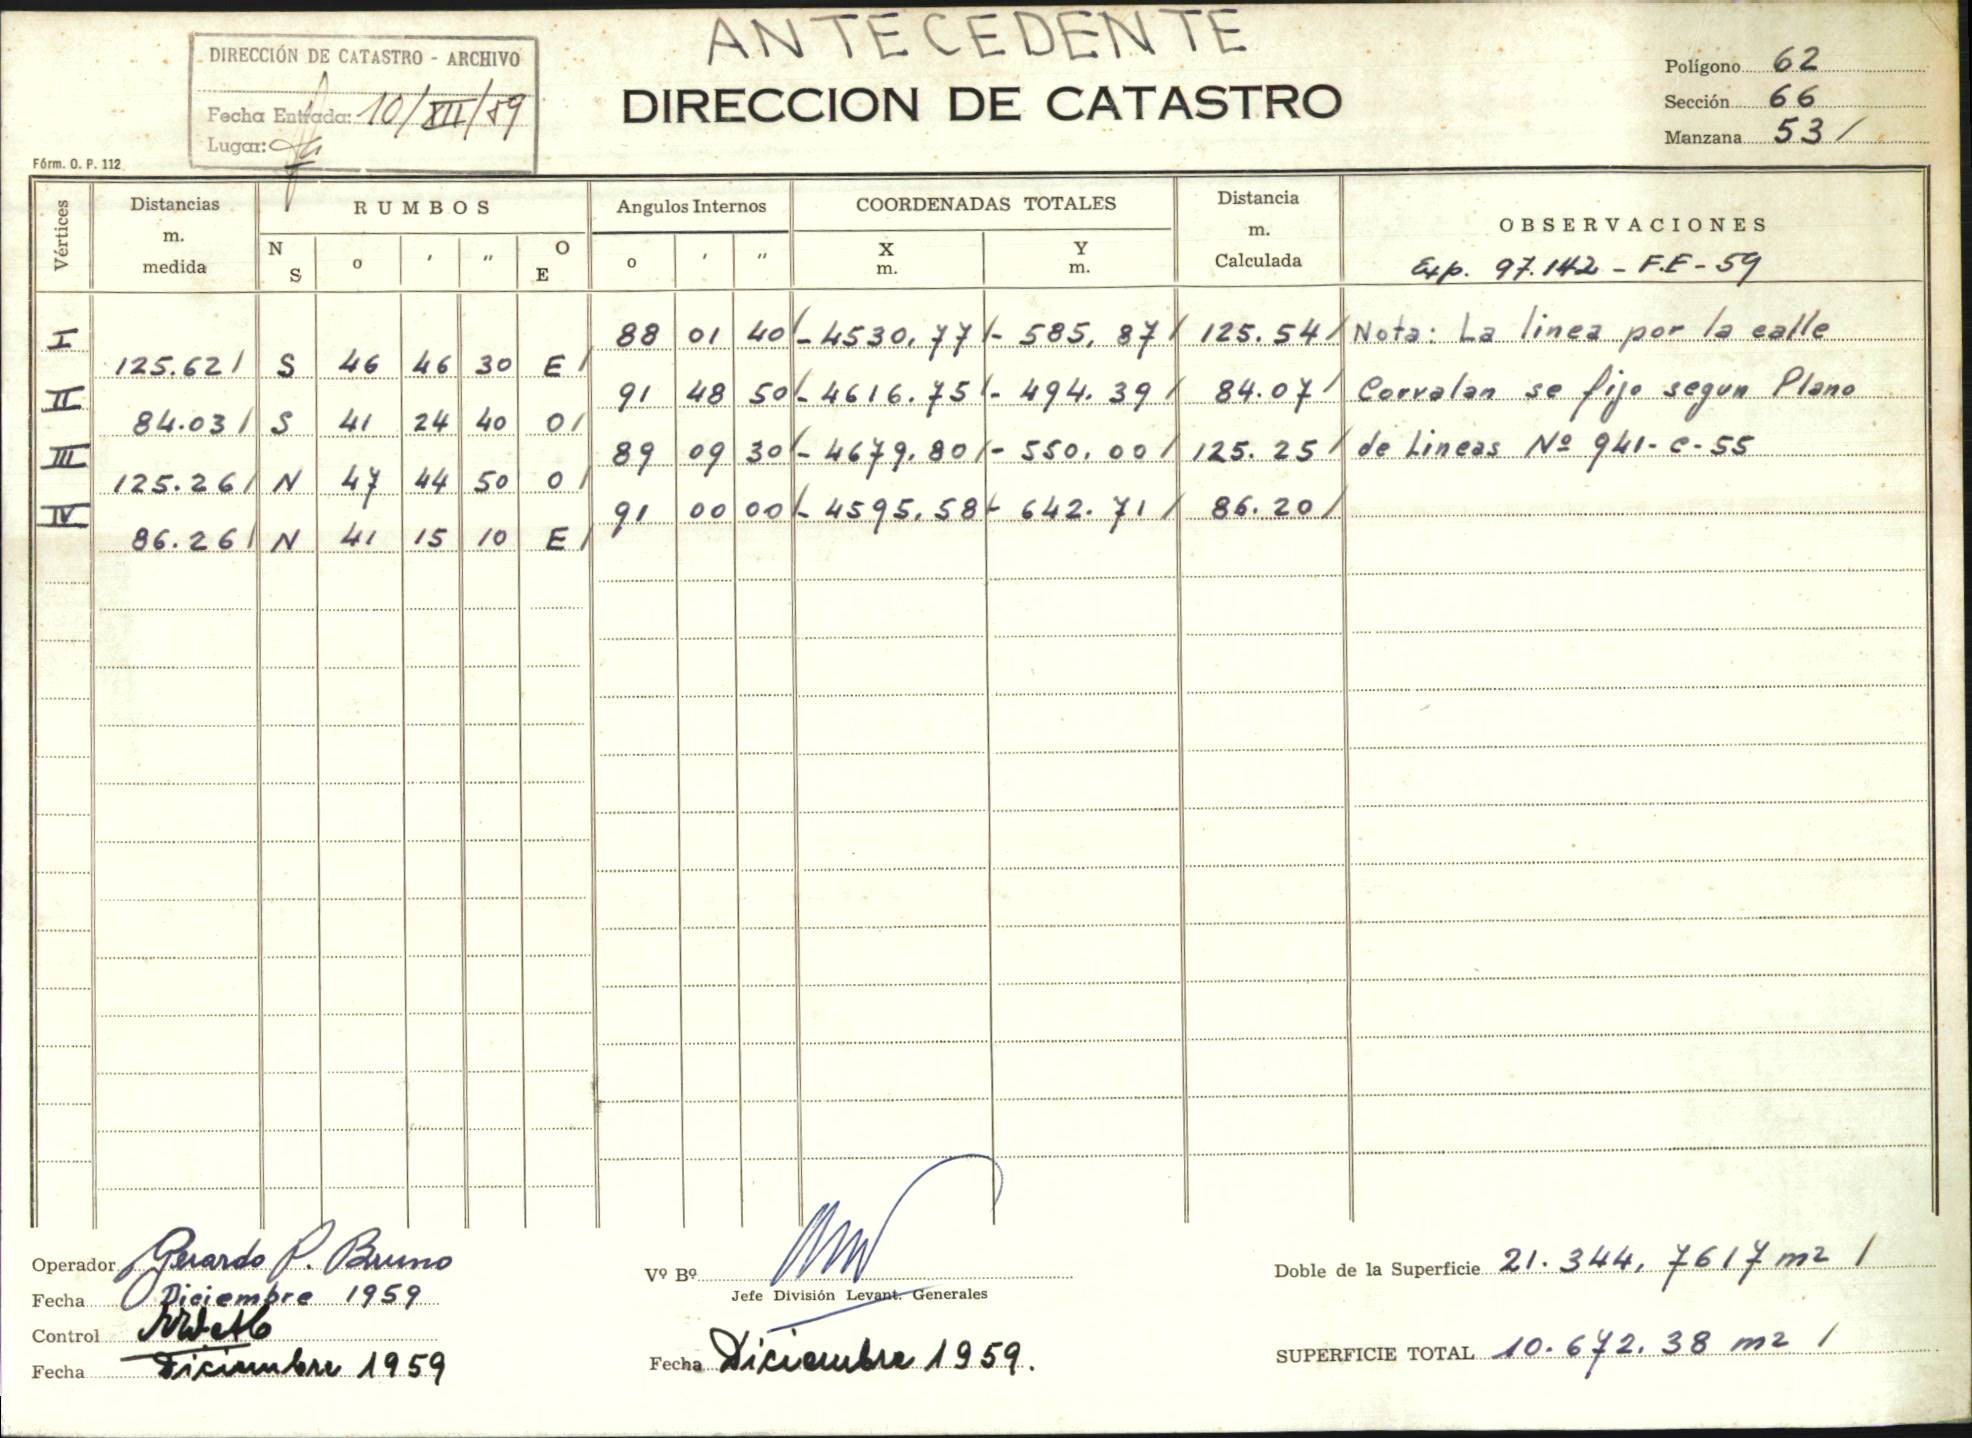 ANTECEDENTE
DIRECCIÓN DE CATASTRO - ARCHIVO
Fecha Entrada: 10/XII/59
Lugar:
DIRECCION DE CATASTRO
Polígono 62
Sección 66
Manzana 53 /
Fórm. O. P. 112
Vértices Distancias m. medida RUMBOS Angulos Internos COORDENADAS TOTALES Distancia m. Calculada OBSERVACIONES
N S o ' " O E o ' " X m. Y m. Exp. 97.142 - F.E - 59
I 88 01 40 / - 4530,77 / - 585,87 / 125.54 / Nota: La linea por la calle
125.62 / S 46 46 30 E /
II 91 48 50 / - 4616.75 / - 494.39 / 84.07 / Corvalan se fijo segun Plano
84.03 / S 41 24 40 O /
III 89 09 30 / - 4679.80 / - 550.00 / 125.25 / de Lineas Nº 941-C-55
125.26 / N 47 44 50 O /
IV 91 00 00 / - 4595.58 / - 642.71 / 86.20 /
86.26 / N 41 15 10 E /
Operador Gerardo P. Bruno
Fecha Diciembre 1959
Control
Fecha Diciembre 1959
Vº Bº
Jefe División Levant. Generales
Fecha Diciembre 1959.
Doble de la Superficie 21.344,7617 m2 /
SUPERFICIE TOTAL 10.672.38 m2 /